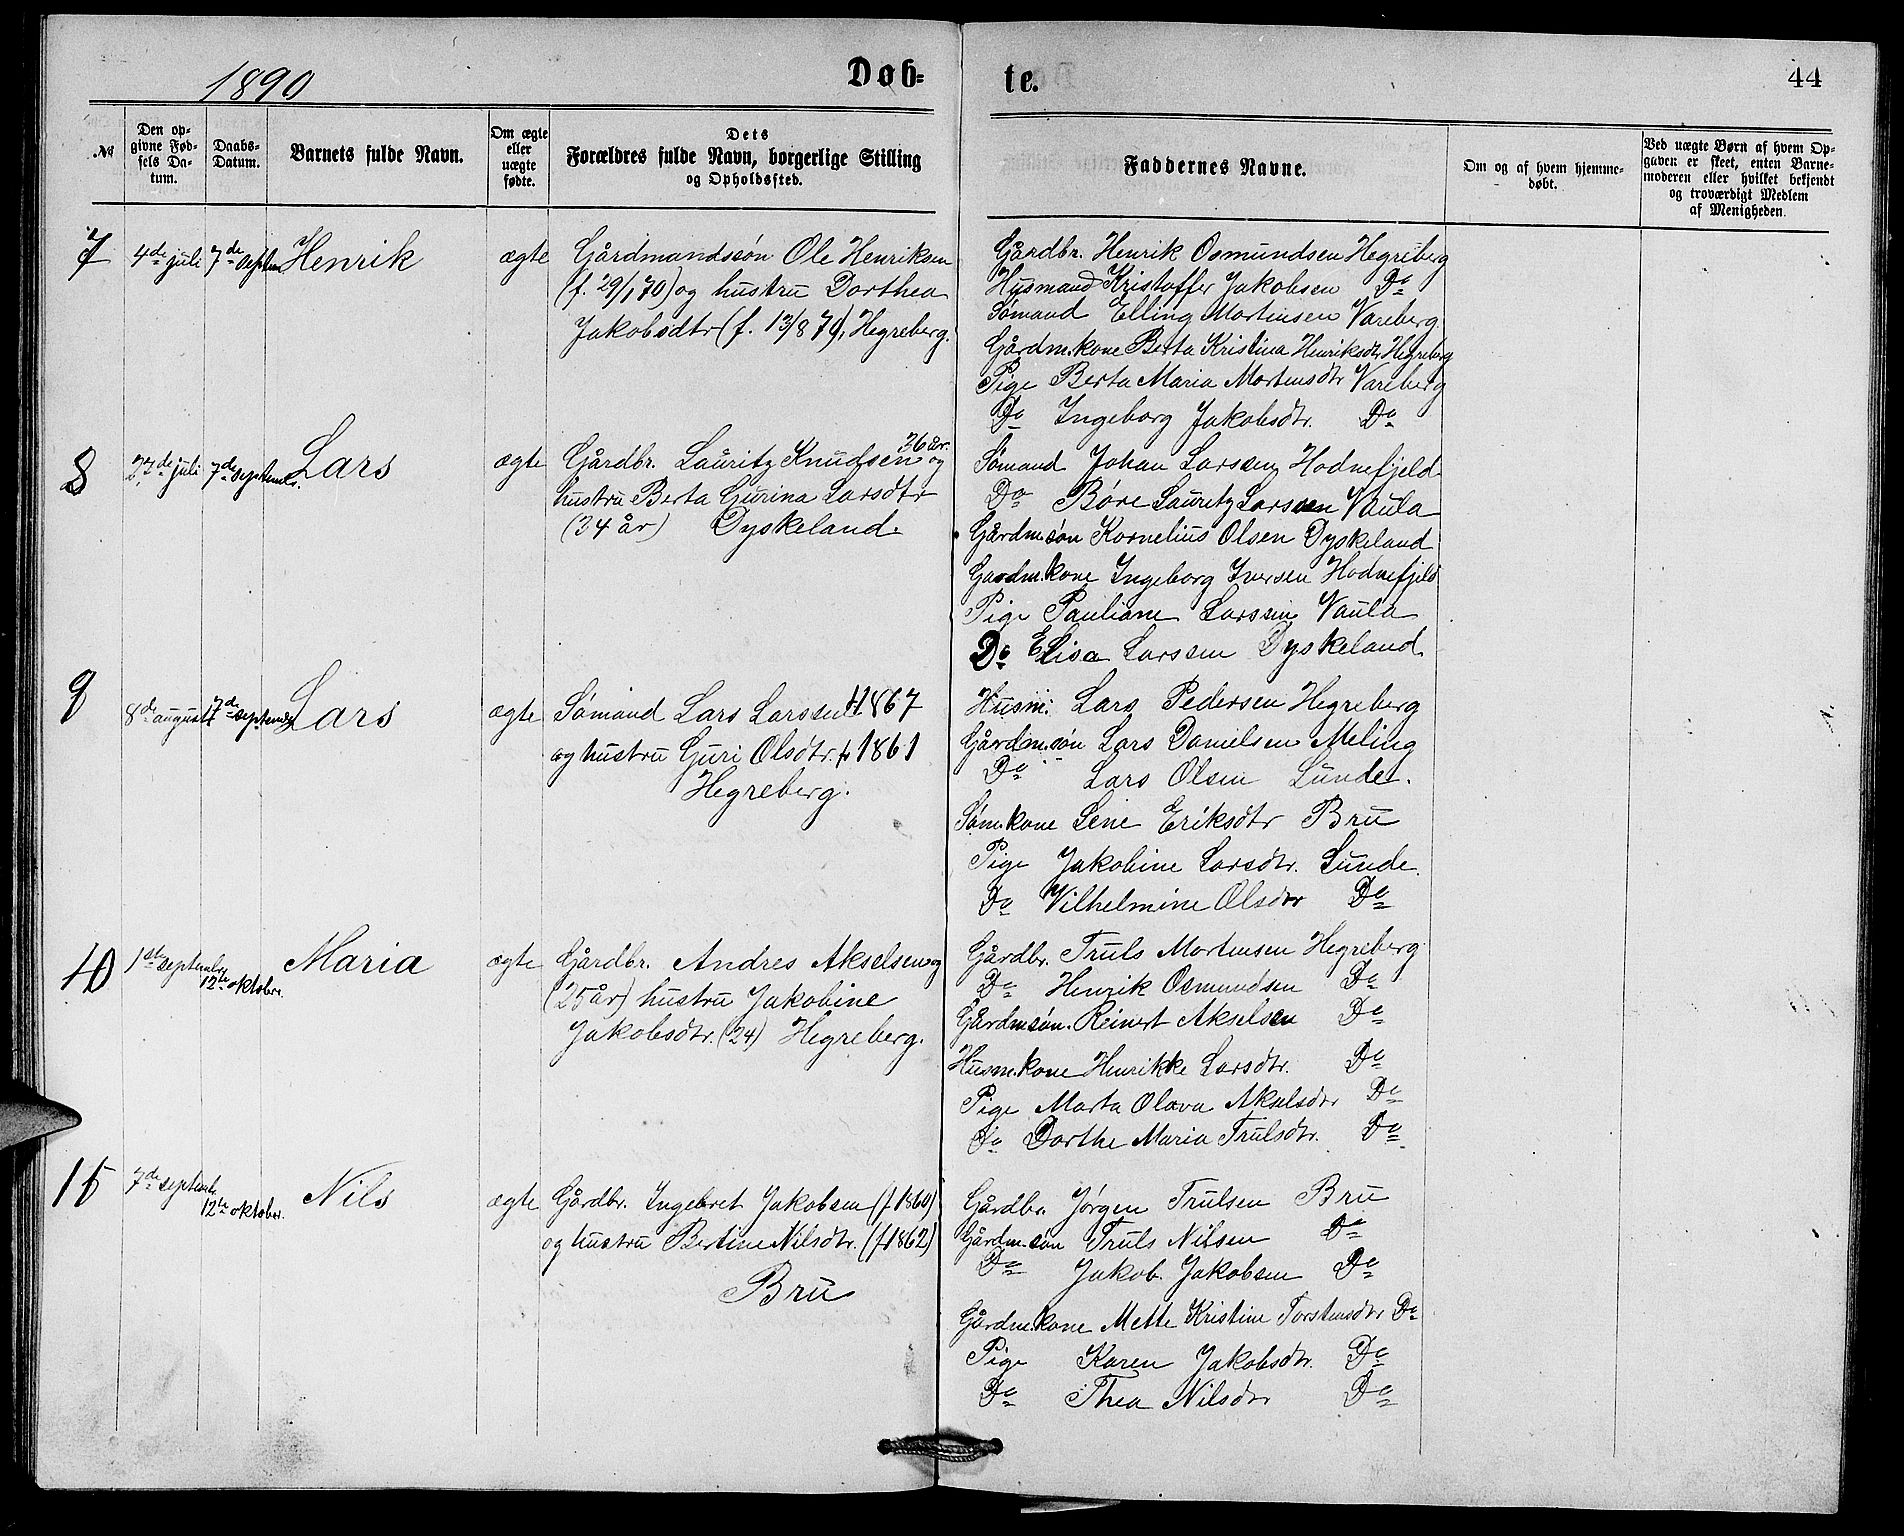 1890
Døb-
te.
44
№
Den op-
givne Fød-
sels Da-
tum.
Daabs-
Datum.
Barnets fulde Navn.
Om ægte
eller
uægte
fødte.
Dets
Forældres fulde Navn, borgerlige Stilling
og Opholdssted.
Faddernes Navne.
Om og af hvem hjemme-
døbt.
Ved uægte Børn af hvem Op-
gaven er skeet, enten Barne-
moderen eller hvilket bekjendt
og troværdigt Medlem
af Menigheden.
7 4de juli 7de septem Henrik ægte
Gårdmandssøn Ole Henriksen
(f. 29/1 70) og hustru Dorthea
Jakobsdtr (f. 13/8 70), Hegreberg.
Gårdbr. Henrik Osmundsen Hegreberg
Husmand Kristoffer Jakobsen Do
Sømand Elling Mortensen Vareberg
Gårdm.kone Berta Kristina Henriksdtr Hegreberg
Pige Berta Maria Mortensdtr Vareberg
Do Ingeborg Jakobsdtr. Do
8 27de juli 7de septembr. Lars ægte
Gårdbr. Lauritz Knudsen 36 år. og
hustru Berta Gurina Larsdtr
(34 år) Dyskeland.
Sømand Johan Larssen Hodnefjeld
Do Børe Lauritz Larssen Vaula
Gårdm.søn Kornelius Olsen Dyskeland
Gårdm.kone Ingeborg Iversen Hodnefjeld
Pige Pauliane Larssen Vaula
Do Elisa Larssen Dyskeland
9 8de august 7de septembr Lars ægte
Sømand Lars Larssen f. 1867
og hustru Guri Olsdtr. f. 1861
Hegreberg.
Husm. Lars Pedersen Hegreberg
Gårdm.søn Lars Danielsen Meling
Do Lars Olsen Lunde.
Søm.kone Lene Eriksdtr Bru
Pige Jakobine Larsdtr. Lunde.
Do Vilhelmine Olsdtr Do
10 1ste septembr 12te oktobr. Maria ægte
Gårdbr. Andres Akselsen og
(25 år) hustru Jakobine
Jakobsdtr. (24) Hegreberg.
Gårdbr. Truls Mortensen Hegreberg
Do Henrik Osmundsen Do
Gårdmsøn. Reinert Akselsen Do
Husm.kone Henrikke Larsdtr. Do
Pige Marta Olava Akselsdtr Do
Do Dorthe Maria Trulsdtr. Do
7de septembr. 12te oktober. Nils ægte
Gårdbr. Ingebret Jakobsen (f. 1860)
og hustru Bertine Nilsdtr. (f. 1862)
Bru
Gårdbr. Jørgen Trulsen Bru
Gårdm.søn Truls Nilsen Do
Do Jakob. Jakobsen Do
Gårdm.kone Mette Kristine Torstensdtr Do
Pige Karen Jakobsdtr. Do
Do Thea Nilsdtr Do